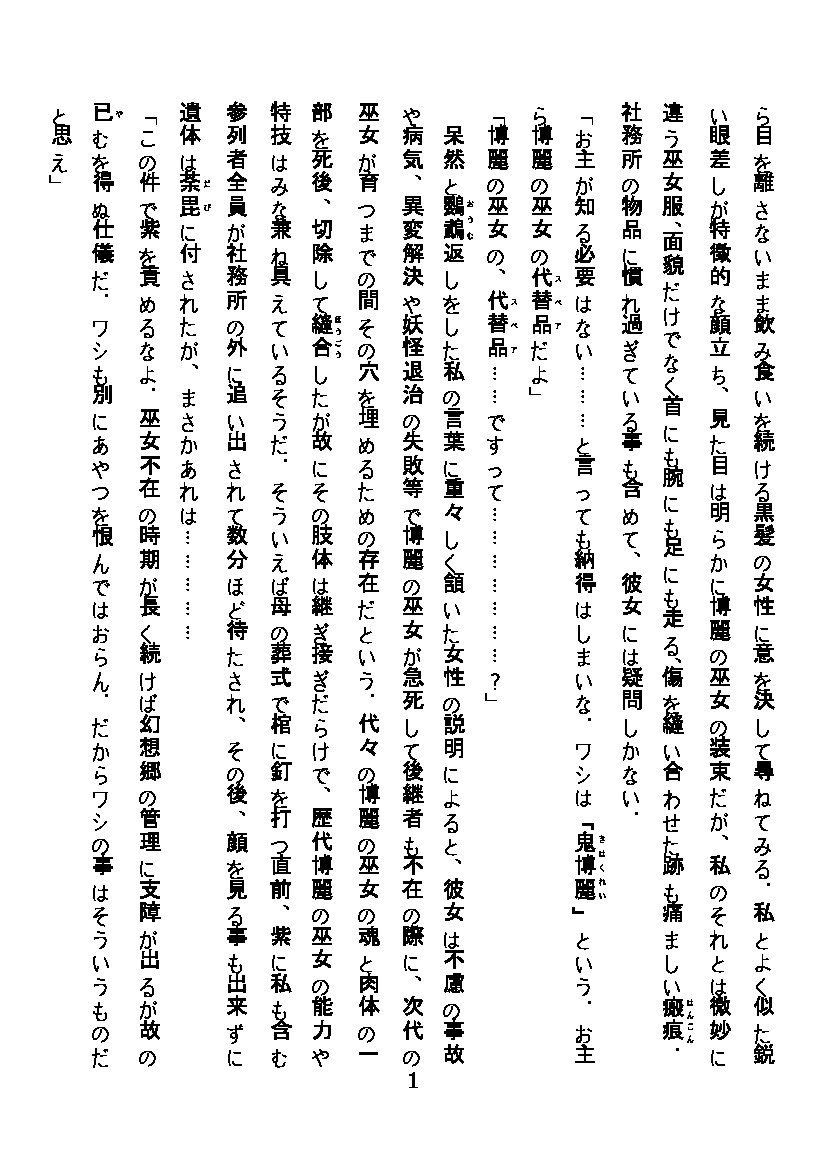 ら目を離さないまま飲み食いを続ける黒髪の女性に意を決して尋ねてみる．私とよく似た鋭
い眼差しが特徴的な顔立ち、見た目は明らかに博麗の巫女の装束だが、私のそれとは微妙に
違う巫女服、面貌だけでなく首にも腕にも足にも走る、傷を縫い合わせた跡も痛ましい瘢痕．
はんこん
社務所の物品に慣れ過ぎている事も含めて、彼女には疑問しかない．
「お主が知る必要はない………と言っても納得はしまいな．ワシは『鬼博麗』という．お主
きはくれい
ら博麗の巫女の代替品だよ」
スペア
「博麗の巫女の、代替品……ですって……………………？」
スペア
呆然と鸚鵡返しをした私の言葉に重々しく頷いた女性の説明によると、彼女は不慮の事故
おうむ
や病気、異変解決や妖怪退治の失敗等で博麗の巫女が急死して後継者も不在の際に、次代の
巫女が育つまでの間その穴を埋めるための存在だという．代々の博麗の巫女の魂と肉体の一
部を死後、切除して縫合したが故にその肢体は継ぎ接ぎだらけで、歴代博麗の巫女の能力や
ほうごう
特技はみな兼ね具えているそうだ．そういえば母の葬式で棺に釘を打つ直前、紫に私も含む
参列者全員が社務所の外に追い出されて数分ほど待たされ、その後、顔を見る事も出来ずに
遺体は荼毘に付されたが、まさかあれは……………
だび
「この件で紫を責めるなよ．巫女不在の時期が長く続けば幻想郷の管理に支障が出るが故の
已むを得ぬ仕儀だ．ワシも別にあやつを恨んではおらん．だからワシの事はそういうものだ
や
と思え」
1